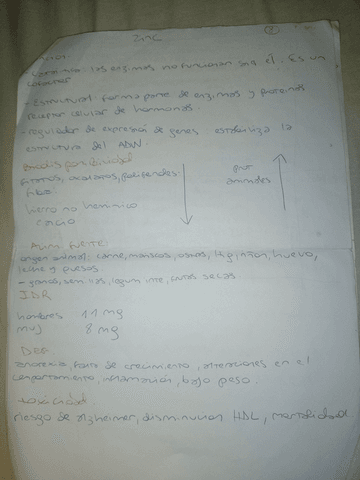 Zinc
2
- Catalítica: las enzimas no funcionan sin él. Es un
cofactor
- Estructural: forma parte de enzimas y proteínas
receptor celular de hormonas.
- regulador de expresión de genes estabiliza la
estructura del ADN.
Biodisponibilidad
fitatos, oxalatos, polifenoles
fibra
prot animales
hierro no hemínico
calcio
Alim. fuente:
origen animal: carne, mariscos, ostras, híg, riñon, huevo,
leche y quesos
- granos, semillas, legum inte, frutas secas
IDR
hombres 11 mg
muj 8 mg
Def
anorexia, falta de crecimiento, alteraciones en el
comportamiento, inflamación, bajo peso.
toxicidad
riesgo de alzheimer, disminucion HDL, mortalidad